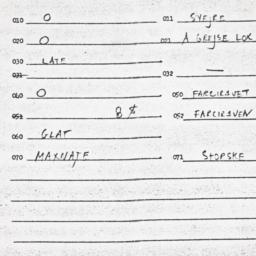 010 O 011 SVEJRE
020 O 021 A GREJSE LOK
030 LATE
032 —
060 O 050 FARCIRSVET
052 8 $ 052 FARCIRSVEN
060 GLAT
070 MAXNATE 071 STOPSKE